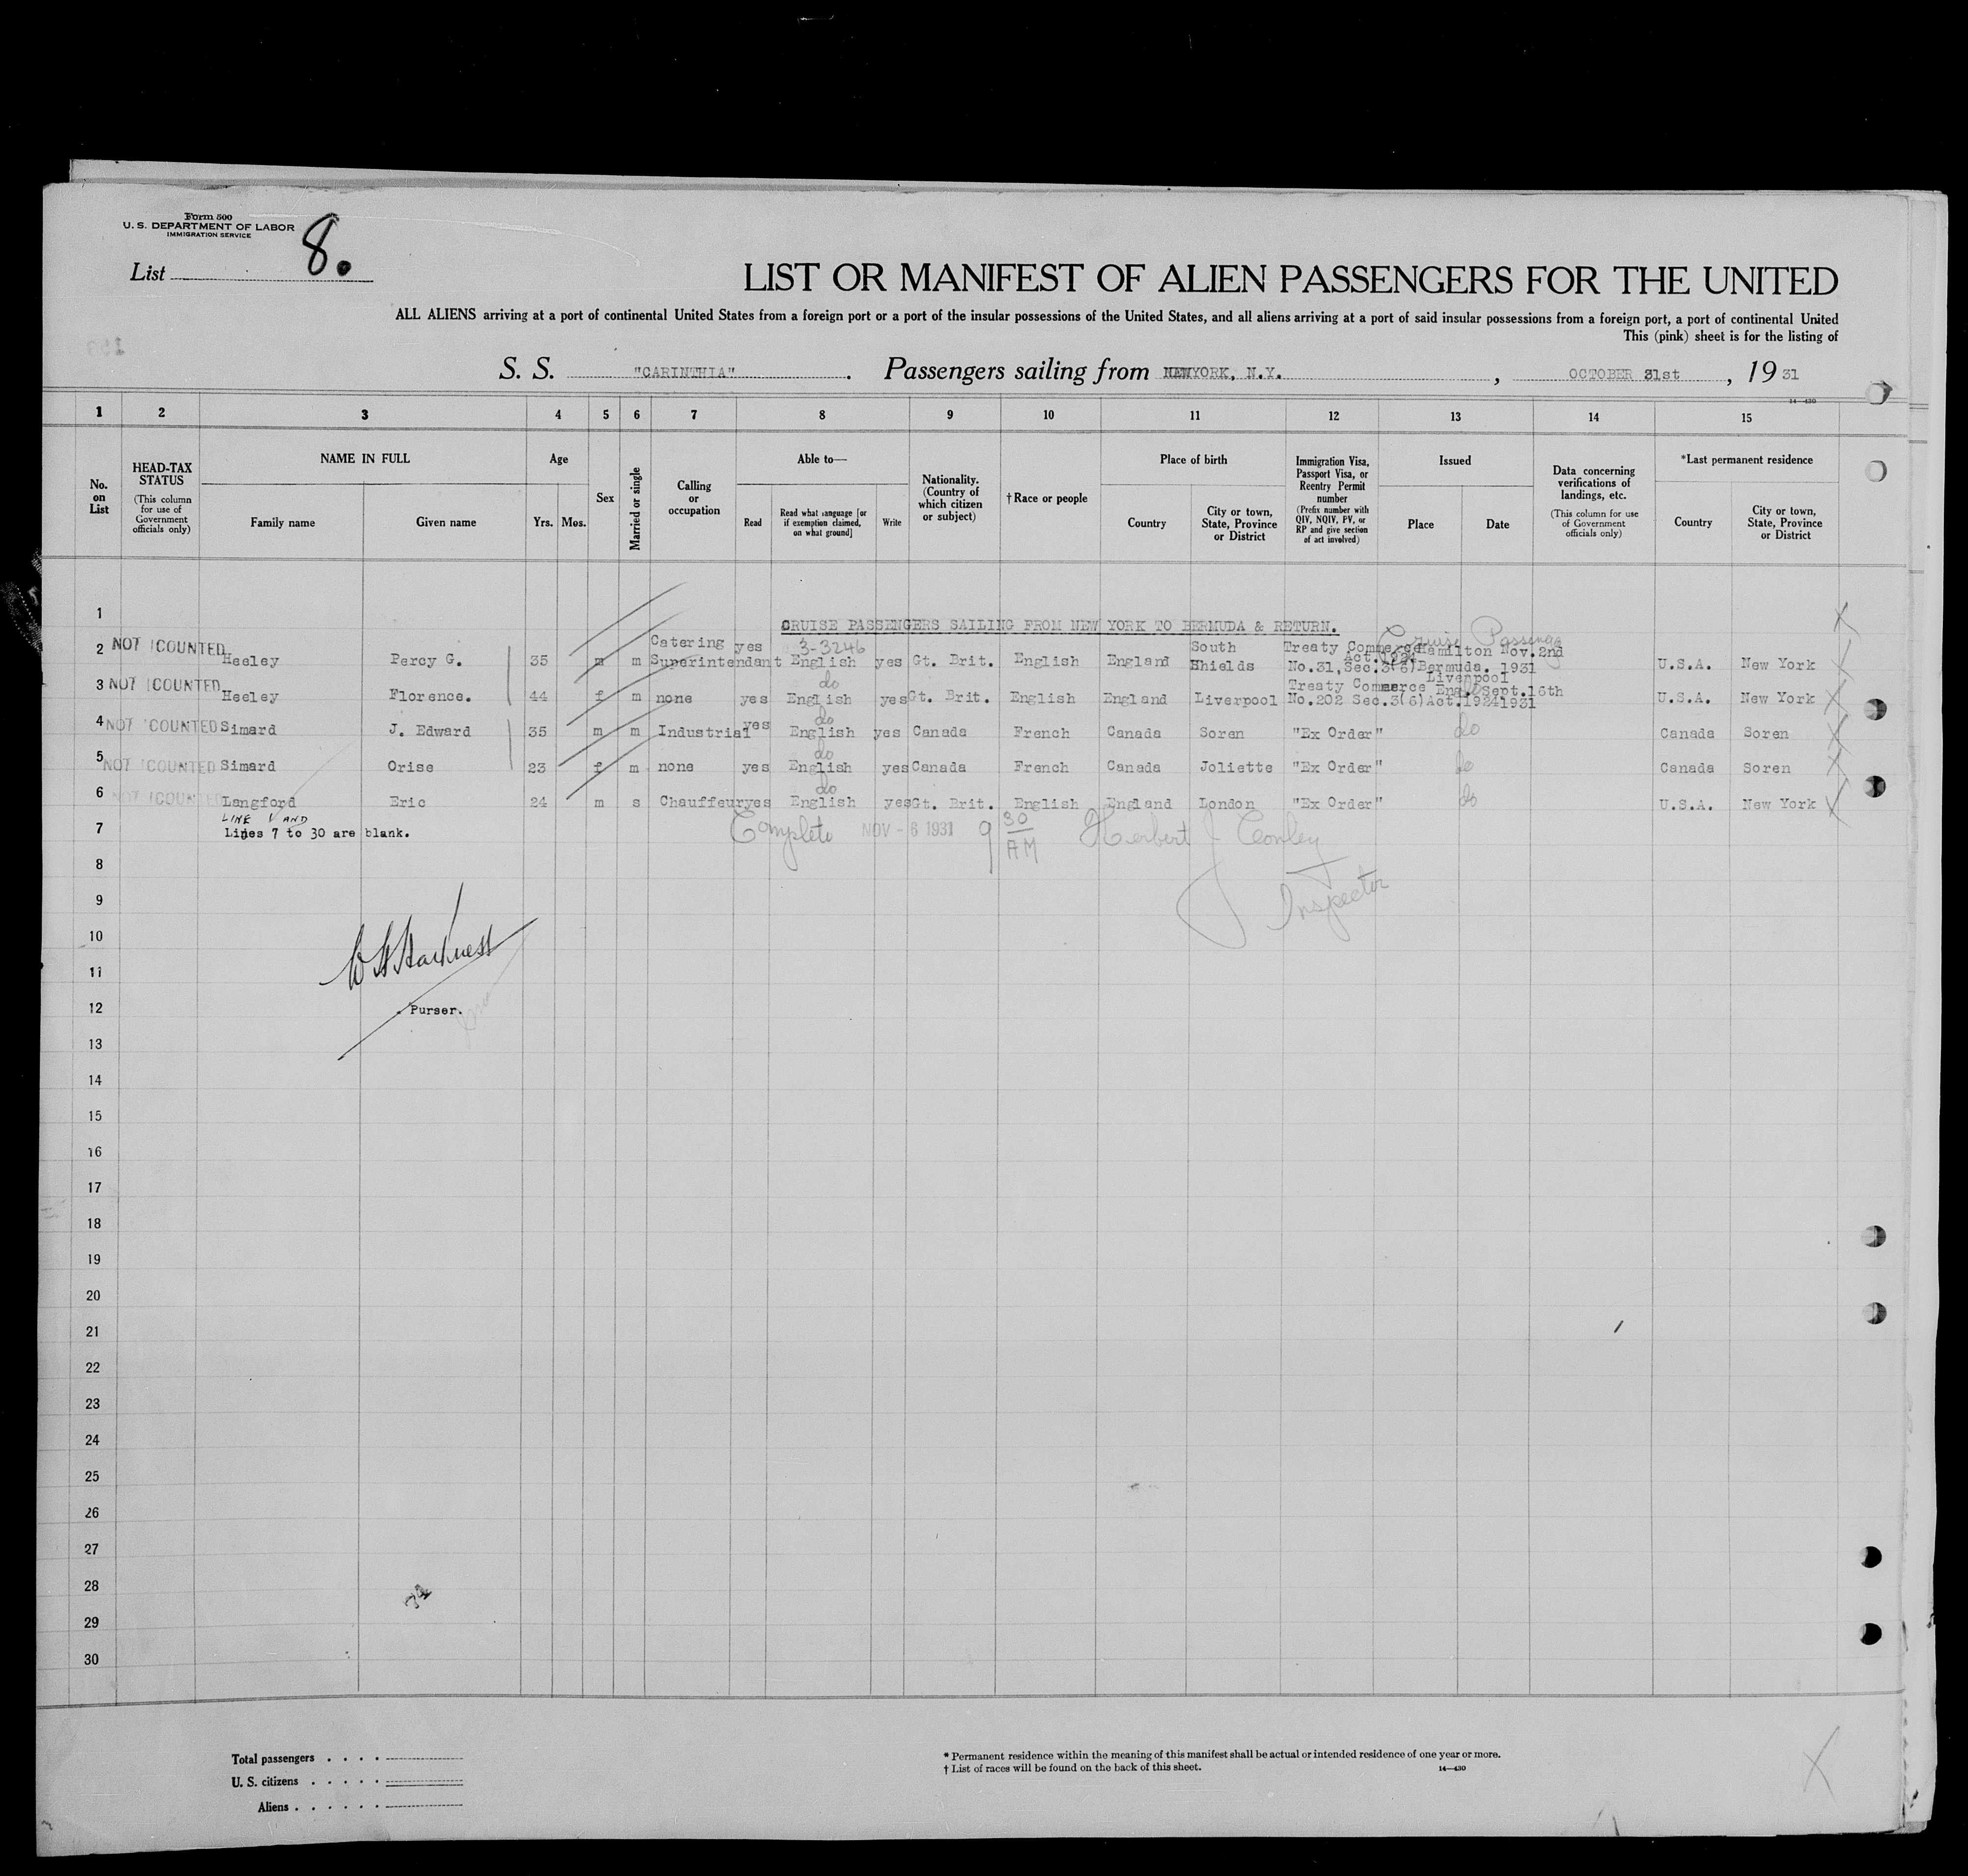 Form 500
U. S. DEPARTMENT OF LABOR
IMMIGRATION SERVICE
List 8.
LIST OR MANIFEST OF ALIEN PASSENGERS FOR THE UNITED
ALL ALIENS arriving at a port of continental United States from a foreign port or a port of the insular possessions of the United States, and all aliens arriving at a port of said insular possessions from a foreign port, a port of continental United
This (pink) sheet is for the listing of
S. S. "CARINTHIA". Passengers sailing from NEWYORK, N.Y., OCTOBER 31st, 19 31
14—430
1 2 3 4 5 6 7 8 9 10 11 12 13 14 15
No. on List
HEAD-TAX STATUS (This column for use of Government officials only)
NAME IN FULL Family name Given name
Age Yrs. Mos.
Sex
Married or single
Calling or occupation
Able to— Read Read what language [or if exemption claimed, on what ground] Write
Nationality. (Country of which citizen or subject)
†Race or people
Place of birth Country City or town, State, Province or District
Immigration Visa, Passport Visa, or Reentry Permit number (Prefix number with QIV, NQIV, PV, or RP and give section of act involved)
Issued Place Date
Data concerning verifications of landings, etc. (This column for use of Government officials only)
*Last permanent residence Country City or town, State, Province or District
1 CRUISE PASSENGERS SAILING FROM NEW YORK TO BERMUDA & RETURN.
Cruise Passenge
3-3246
2 NOT COUNTED Heeley Percy G. 35 m m Catering Superintendant yes English yes Gt. Brit. English England South Shields Treaty Commerce No.31, Sec.3(6) Act.1924 Hamilton Bermuda. Nov.2nd 1931 U.S.A. New York
do
3 NOT COUNTED Heeley Florence. 44 f m none yes English yes Gt. Brit. English England Liverpool Treaty Commerce No.202 Sec.3(6)Act.1924 Liverpool Eng. Sept.16th 1931 U.S.A. New York
do
4 NOT COUNTED Simard J. Edward 35 m m Industrial yes English yes Canada French Canada Soren "Ex Order" do Canada Soren
do
5 NOT COUNTED Simard Orise 23 f m none yes English yes Canada French Canada Joliette "Ex Order" do Canada Soren
do
6 NOT COUNTED Langford Eric 24 m s Chauffeur yes English yes Gt. Brit. English England London "Ex Order" do U.S.A. New York
LINE 1 AND
7 Lines 7 to 30 are blank. Complete NOV - 6 1931 9 30 AM Herbert J Conley
Inspector
8
9
10
11
12 Purser.
13
14
15
16
17
18
19
20
21
22
23
24
25
26
27
28
29
30
Total passengers . . . .
U. S. citizens . . . . .
Aliens . . . . . .
* Permanent residence within the meaning of this manifest shall be actual or intended residence of one year or more.
† List of races will be found on the back of this sheet. 14—430